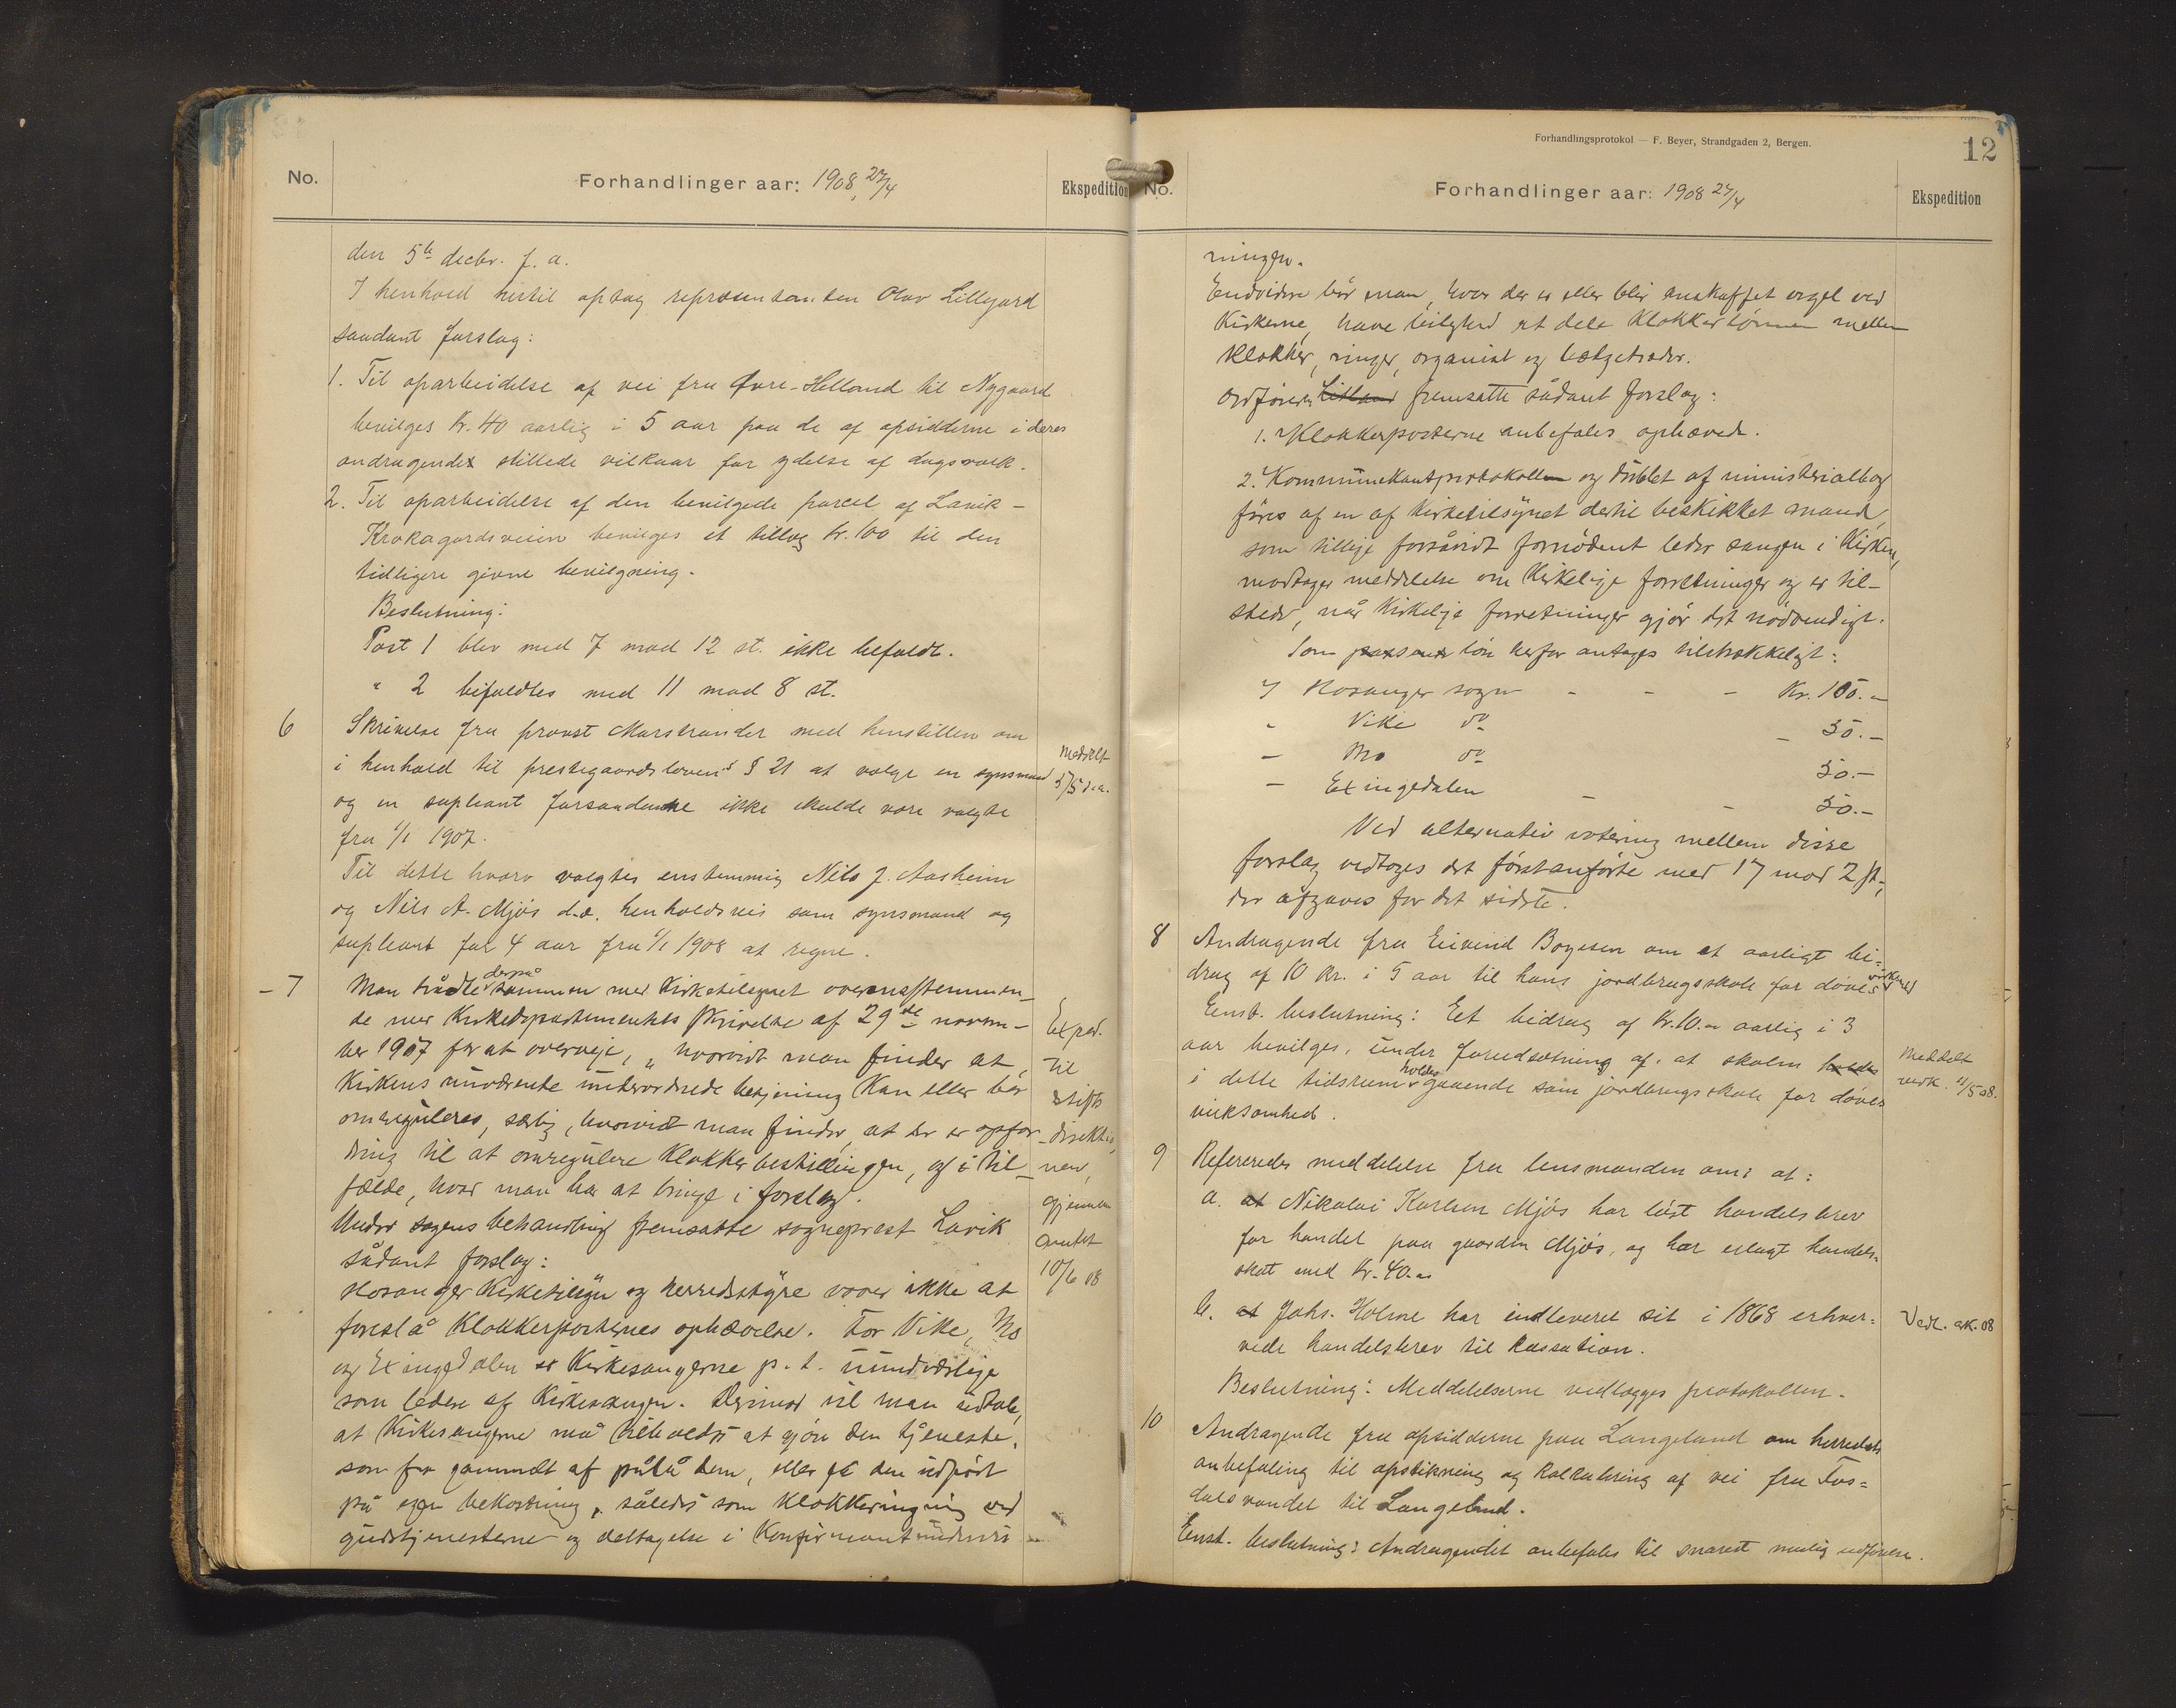 No.
Forhandlinger aar: 1908, 27/4
Ekspedition
den 5te decbr. f. a.
I henhold hertil optog repræsentanten Olav Lillegard
saadant forslag:
1. Til oparbeidelse af vei fra Øvre-Helland til Nygaard
bevilges kr. 40 aarlig i 5 aar paa de af opsidderne i deres
andragende stillede vilkaar for ydelse af dagsværk.
2. Til oparbeidelse af den bevilgede parcel af Lavik-
Krokagardsveien bevilges et tillæg kr. 100 til den
tidligere givne bevilgning.
Beslutning:
Post 1 blev med 7 mod 12 st. ikke bifaldt.
" 2 bifaldtes med 11 mod 8 st.
6 Skrivelse fra provst Marstrander med henstillen om
i henhold til prestegaardsloven's § 21 at vælge en synsmand
og en supleant forsaavidt ikke skulde være valgte
fra 1/1 1907.
Til dette hværv valgtes enstemmig Nils J. Aasheim
og Nils A. Mjøs d.æ. henholdsvis som synsmand og
supleant for 4 aar fra 1/1 1908 at regne.
Meddelt
5/5 d.a.
- 7 Man trådte derpå sammen med Kirketilsynet overensstemmen-
de med Kirkedepartementets skrivelse af 29de novem-
ber 1907 for at overveje, "hvorvidt man finder at
Kirkens nuværende underordnede betjening kan eller bør
omreguleres, særlig, hvorvidt man finder, at der er opfor-
dring til at omregulere Klokkerbestillingen, og i til-
fælde, hvad man har at bringe i forslag.
Under sagens behandling fremsatte sogneprest Lavik
sådant forslag:
Hosanger Kirketilsyn og herredsstyre vover ikke at
foreslå Klokkerposternes ophævelse. For Vike, Mo
og Exingedalen er Kirkesangerne p. t. uundværlige
som ledere af Kirkesangen. Derimod vil man udtale,
at Kirkesangerne må tilholdes at gjøre den tjeneste,
som fra gammelt af påhvilte dem, eller få den udført
på egen bekostning, således som Klokkeringning ved
gudstjenesterne og deltagelse i Konfirmantundervis-
Exped.
til
stifts
direktio
nen,
gjennem
amtet
10/6 08
Forhandlingsprotokol — F. Beyer, Strandgaden 2, Bergen.
12
No.
Forhandlinger aar: 1908 27/4
Ekspedition
ningen.
Endvidere bør man, hvor der er eller blir anskaffet orgel ved
Kirkerne, have leilighed at dele Klokkerlønnen mellem
Klokker, ringer, organist og bælgetræder.
Ordføreren fremsatte sådant forslag:
1. Klokkerposterne anbefales ophævede.
2. Kommunikantprotokollen og dublet af ministerialbog
føres af en af Kirketilsynet dertil beskikket mand,
som tillige forsåvidt fornødent leder sangen i Kirken,
modtager meddelelse om Kirkelige forretninger og er til-
stede, når Kirkelige forretninger gjør det nødvendigt.
Som løn herfor antages tilstrækkeligt:
I Hosanger sogn - - - Kr. 100.-
- Vike do - 50.-
- Mo do 50.-
- Exingedalen - - 50.-
Ved alternativ votering mellem disse
forslag vedtoges det førstanførte med 17 mod 2 st.,
der afgaves for det sidste.
8 Andragende fra Eivind Boyesen om et aarligt bi-
drag af 10 kr. i 5 aar til hans jordbrugsskole for døves virksomhed
Enst. beslutning: Et bidrag af kr. 10.- aarlig i 3
aar bevilges, under forudsætning af, at skolen
i dette tidsrum holdes gaaende som jordbrugsskole for døves
virksomhed.
Meddelt
vedk. 11/5 08.
9 Refereredes meddelelse fra lensmanden om: at:
a. at Nikolai Karlsen Mjøs har løst handelsbrev
for handel paa gaarden Mjøs, og har erlagt handels-
skat med kr. 40.-
b. at Johs. Holme har indleveret sit i 1868 erhver-
vede handelsbrev til kassation.
Vedl. 08
Beslutning: Meddelelserne vedlægges protokollen.
10 Andragende fra opsidderne paa Langeland om herredets
anbefaling til opstikning og kalkulering af vei fra Fos-
dalsvandet til Langeland.
Enst. beslutning: Andragendet anbefales til snarest mulig udførelse.